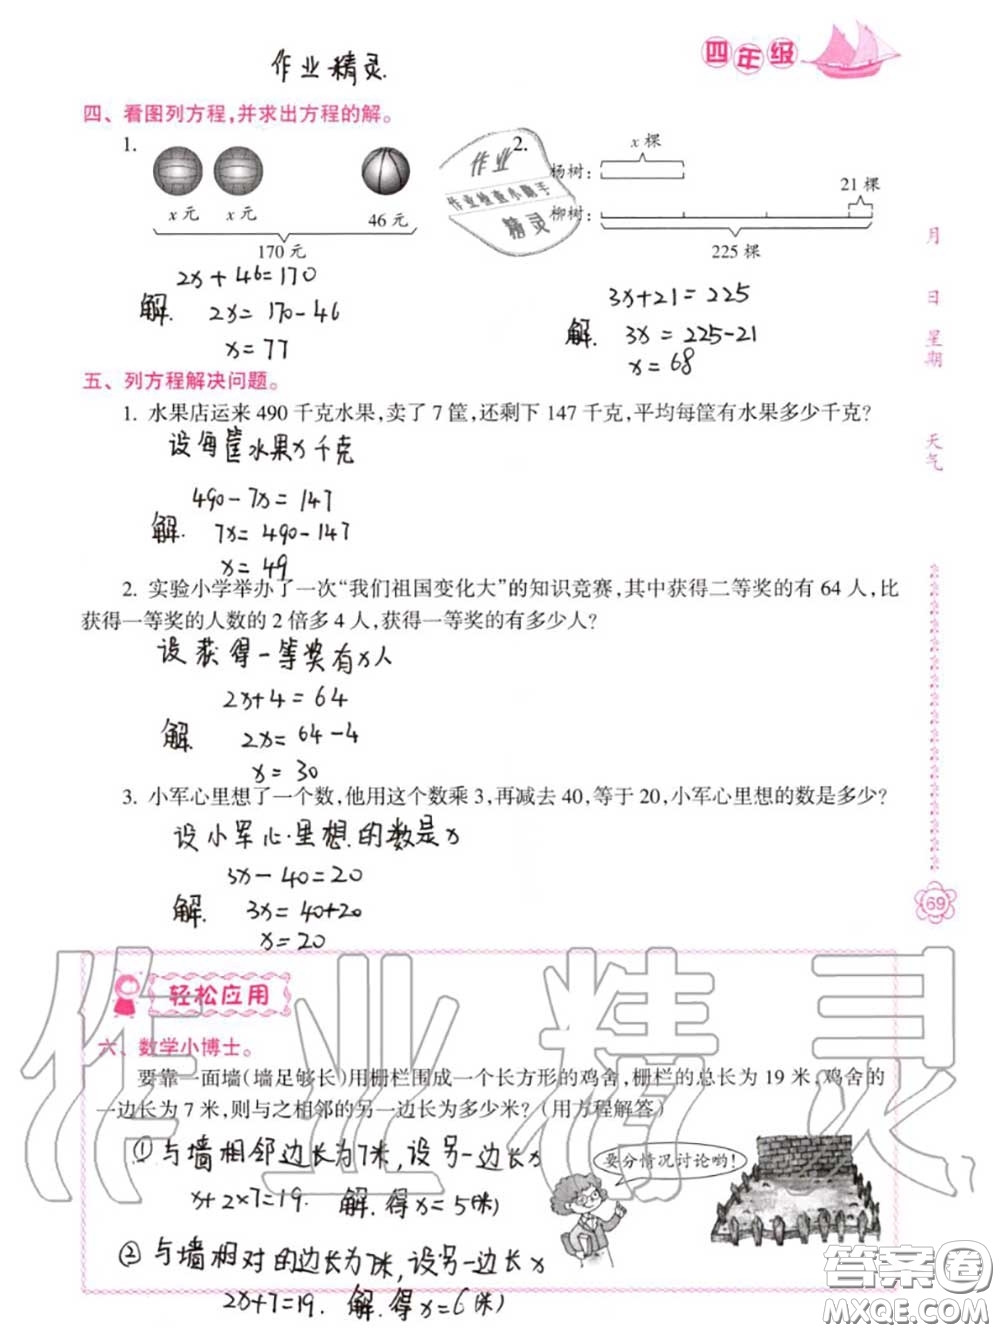 四年级
作业精灵.
四、看图列方程,并求出方程的解。
1.
x元 x元 46元
170元
2x+46=170
解. 2x=170-46
x=77
作业
作业检查小助手
精灵
2.
x棵
杨树:
21棵
柳树:
225棵
3x+21=225
解. 3x=225-21
x=68
月
日
星期
天气
五、列方程解决问题。
1. 水果店运来490千克水果,卖了7筐,还剩下147千克,平均每筐有水果多少千克?
设每筐水果x千克
490-7x=147
解. 7x=490-147
x=49
2. 实验小学举办了一次“我们祖国变化大”的知识竞赛,其中获得二等奖的有64人,比
获得一等奖的人数的2倍多4人,获得一等奖的有多少人?
设获得一等奖有x人
2x+4=64
解. 2x=64-4
x=30
3. 小军心里想了一个数,他用这个数乘3,再减去40,等于20,小军心里想的数是多少?
设小军心里想的数是x
3x-40=20
解. 3x=40+20
x=20
69
轻松应用
六、数学小博士。
要靠一面墙(墙足够长)用栅栏围成一个长方形的鸡舍,栅栏的总长为19米,鸡舍的
一边长为7米,则与之相邻的另一边长为多少米?(用方程解答)
①与墙相邻边长为7米,设另一边长x
x+2×7=19. 解.得x=5(米)
要分情况讨论哟!
②与墙相对的边长为7米,设另一边长x
2x+7=19. 解.得x=6(米)
作业精灵
答案圈
MXQE.COM